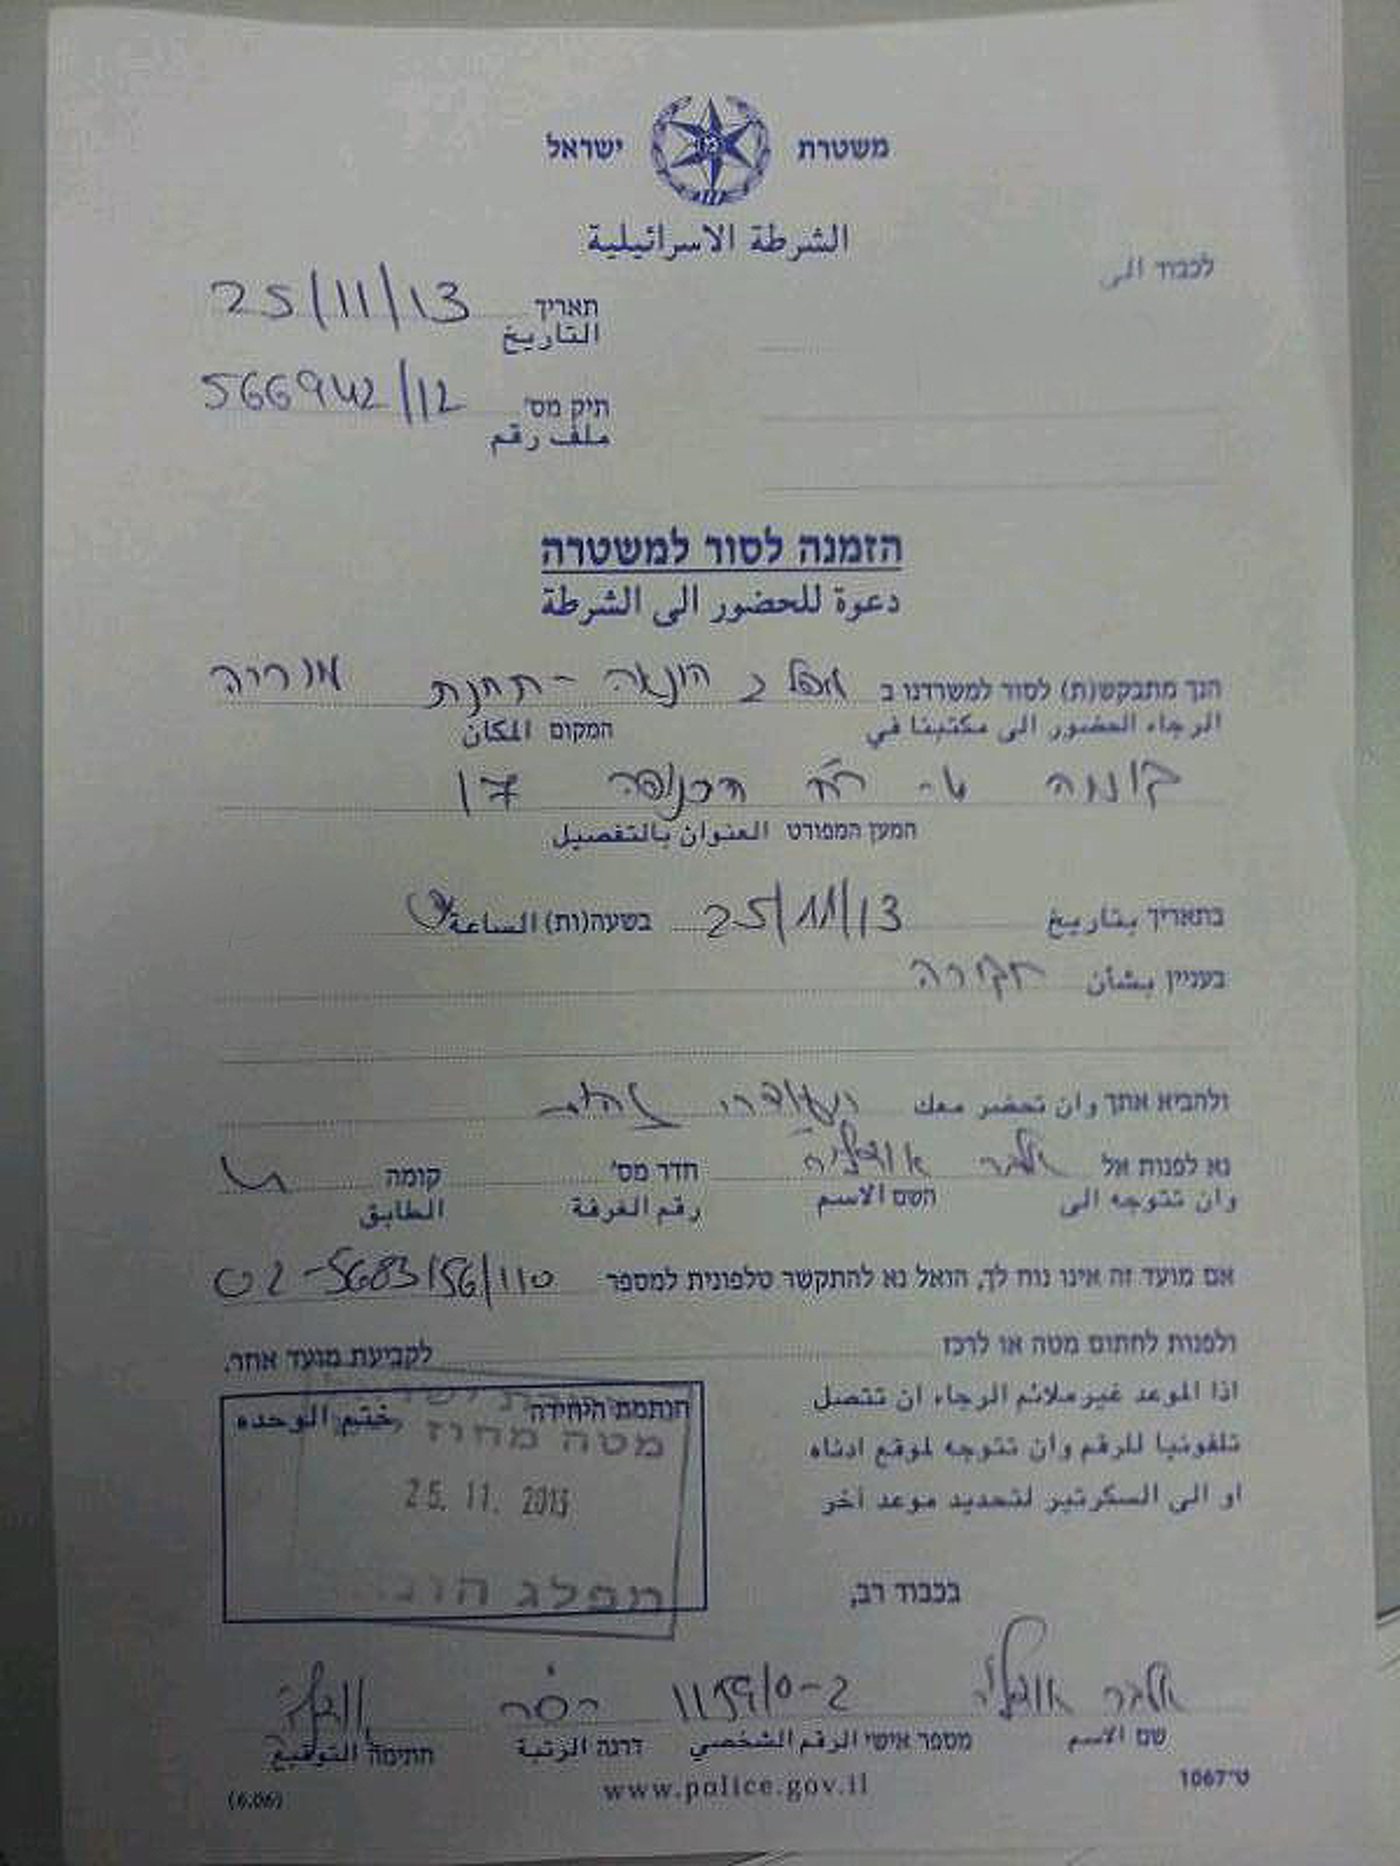 משטרת ישראל
الشرطة الاسرائيلية
לכבוד الى
תאריך 25/11/13
التاريخ
תיק מס' 566942/12
ملف رقم
הזמנה לסור למשטרה
دعوة للحضور الى الشرطة
הנך מתבקש(ת) לסור למשרדנו ב הונאה - תחנת מוריה
الرجاء الحضور الى مكتبنا في המקום المكان
קומה 17
המען המפורט العنوان بالتفصيل
בתאריך بتاريخ 25/11/13 בשעה(ות) الساعة
בעניין بشأن חקירה
ולהביא אתך وان تحضر معك
נא לפנות אל חדר מס' קומה
وان تتوجه الى השם الاسم رقم الغرفة الطابق
אם מועד זה אינו נוח לך, הואל נא להתקשר טלפונית למספר 02-5683156/110
ולפנות לחתום מטה או לרכז לקביעת מועד אחר.
اذا الموعد غير ملائم الرجاء ان تتصل
تلفونيا للرقم وان تتوجه لموقع ادناه
او الى السكرتير لتحديد موعد اخر
חותמת היחידה ختم الوحده
מטה מחוז
25. 11. 2013
מפלג
בכבוד רב,
שם الاسم מספר אישי الرقم الشخصي דרגה الرتبة חתימה التوقيع
www.police.gov.il
ט-1067
(6.06)